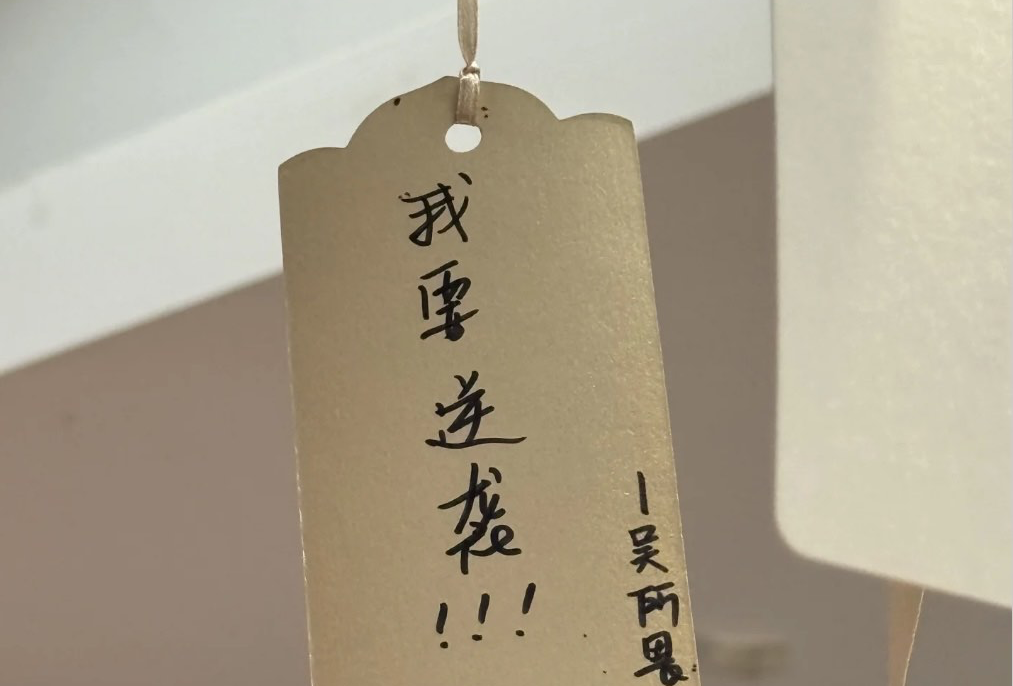 我要逆袭!!!
—吴所畏